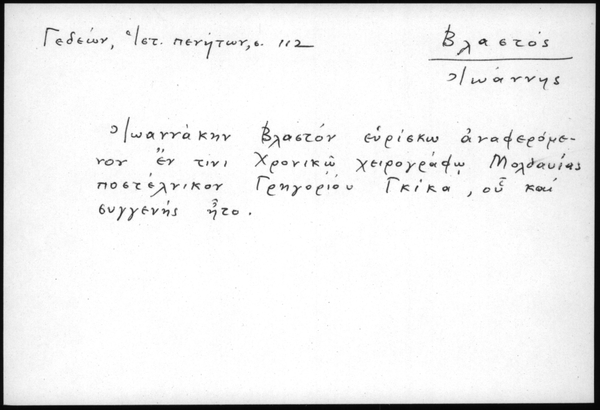 Γεδεών, Ἱστ. πενήτων, σ. 112
Βλαστός
Ἰωάννης
Ἰωαννάκην Βλαστόν εὑρίσκω ἀναφερόμε-
νον ἔν τινι Χρονικῷ χειρογράφῳ Μολδαυίας
ποστέλνικον Γρηγορίου Γκίκα, οὗ καί
συγγενής ἦτο.